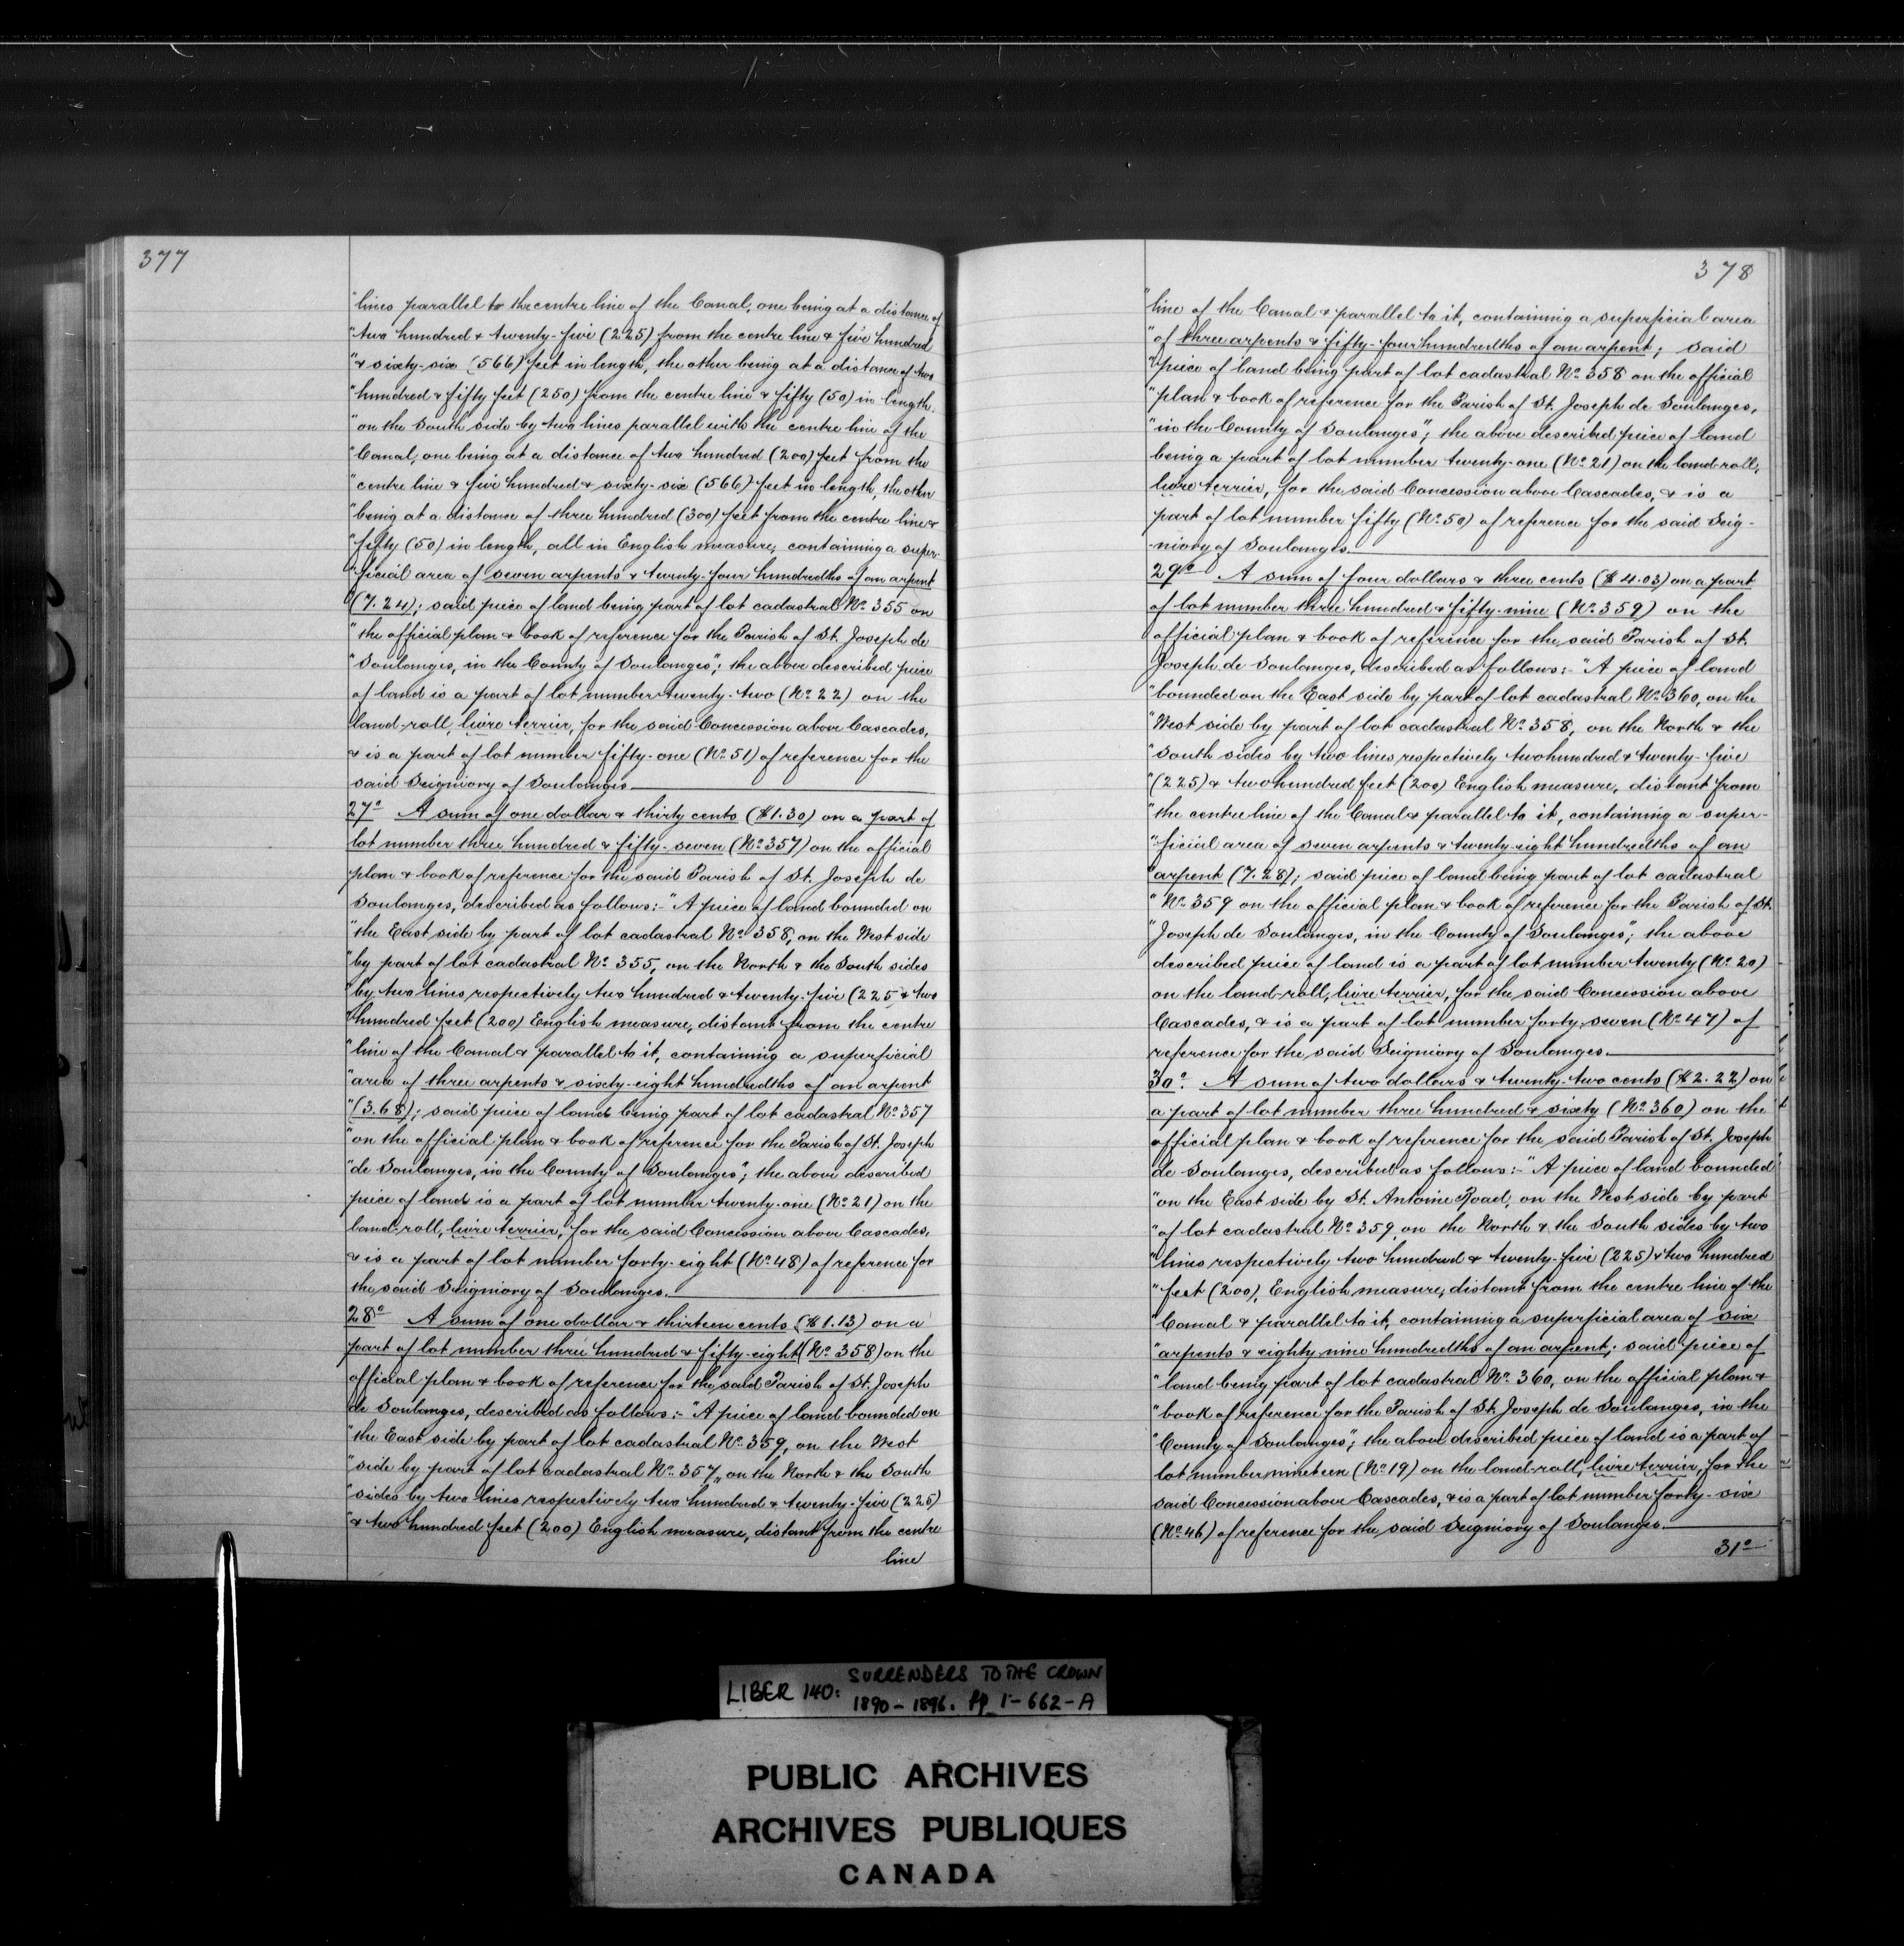 377
"lines parallel to the centre line of the Canal, one being at a distance of
"two hundred & twenty-five (225) from the centre line & five hundred
"& sixty-six (566) feet in length, the other being at a distance of two
"hundred & fifty feet (250) from the centre line & fifty (50) in length.
"on the South side by two lines parallel with the centre line of the
"Canal, one being at a distance of two hundred (200) feet from the
"centre line & five hundred & sixty-six (566) feet in length, the other
"being at a distance of three hundred (300) feet from the centre line &
"fifty (50) in length, all in English measure; containing a super-
"ficial area of seven arpents & twenty-four hundredths of an arpent
"(7.24); said piece of land being part of lot cadastral No. 355 on
"the official plan & book of reference for the Parish of St. Joseph de
"Soulanges, in the County of Soulanges"; the above described piece
of land is a part of lot number twenty-two (No. 22) on the
land-roll, livre terrier, for the said Concession above Cascades,
& is a part of lot number fifty-one (No. 51) of reference for the
said Seigniory of Soulanges.
27o A sum of one dollar & thirty cents ($1.30) on a part of
lot number three hundred & fifty-seven (No. 357) on the official
plan & book of reference for the said Parish of St. Joseph de
Soulanges, described as follows:- "A piece of land bounded on
"the East side by part of lot cadastral No. 358, on the West side
"by part of lot cadastral No. 355, on the North & the South sides
"by two lines respectively two hundred & twenty-five (225 & two
"hundred feet (200) English measure, distant from the centre
"line of the Canal & parallel to it, containing a superficial
"area of three arpents & sixty-eight hundredths of an arpent
"(3.68); said piece of land being part of lot cadastral No. 357
"on the official plan & book of reference for the Parish of St. Joseph
"de Soulanges, in the County of Soulanges"; the above described
piece of land is a part of lot number twenty-one (No. 21) on the
land-roll, livre terrier, for the said Concession above Cascades,
& is a part of lot number forty-eight (No. 48) of reference for
the said Seigniory of Soulanges.
28o A sum of one dollar & thirteen cents ($1.13) on a
part of lot number three hundred & fifty-eight (No. 358) on the
official plan & book of reference for the said Parish of St. Joseph
de Soulanges, described as follows:- "A piece of land bounded on
"the East side by part of lot cadastral No. 359, on the West
"side by part of lot cadastral No. 357, on the North & the South
"sides by two lines respectively two hundred & twenty-five (225)
"& two hundred feet (200) English measure, distant from the centre
line
378
"line of the Canal & parallel to it, containing a superficial area
"of three arpents & fifty-four hundredths of an arpent; said
"piece of land being part of lot cadastral No. 358 on the official
"plan & book of reference for the Parish of St. Joseph de Soulanges,
"in the County of Soulanges"; the above described piece of land
being a part of lot number twenty-one (No. 21) on the land-roll,
livre terrier, for the said Concession above Cascades, & is a
part of lot number fifty (No. 50) of reference for the said Seig-
-niory of Soulanges.
29o A sum of four dollars & three cents ($4.03) on a part
of lot number three hundred & fifty-nine (No. 359) on the
official plan & book of reference for the said Parish of St.
Joseph de Soulanges, described as follows:- "A piece of land
"bounded on the East side by part of lot cadastral No. 360, on the
"West side by part of lot cadastral No. 358, on the North & the
"South sides by two lines respectively two hundred & twenty-five
"(225) & two hundred feet (200) English measure, distant from
"the centre line of the Canal & parallel to it, containing a super-
"ficial area of seven arpents & twenty-eight hundredths of an
"arpent (7.28); said piece of land being part of lot cadastral
"No. 359 on the official plan & book of reference for the Parish of St.
"Joseph de Soulanges, in the County of Soulanges"; the above
described piece of land is a part of lot number twenty (No. 20)
on the land-roll, livre terrier, for the said Concession above
Cascades, & is a part of lot number forty seven (No. 47) of
reference for the said Seigniory of Soulanges.
30o. A sum of two dollars & twenty-two cents ($2.22) on
a part of lot number three hundred & sixty (No. 360) on the
official plan & book of reference for the said Parish of St. Joseph
de Soulanges, described as follows:- "A piece of land bounded
"on the East side by St. Antoine Road, on the West side by part
"of lot cadastral No. 359, on the North & the South sides by two
"lines respectively two hundred & twenty-five (225) & two hundred
"feet (200), English measure, distant from the centre line of the
"Canal & parallel to it, containing a superficial area of six
"arpents & eighty nine hundredths of an arpent; said piece of
"land being part of lot cadastral No. 360, on the official plan &
"book of reference for the Parish of St. Joseph de Soulanges, in the
"County of Soulanges"; the above described piece of land is a part of
lot number nineteen (No. 19) on the land-roll, livre terrier, for the
said Concession above Cascades, & is a part of lot number forty-six
(No. 46) of reference for the said Seigniory of Soulanges.
31o
LIBER 140: SURRENDERS TO THE CROWN
1890-1896. pp 1-662-A
PUBLIC ARCHIVES
ARCHIVES PUBLIQUES
CANADA